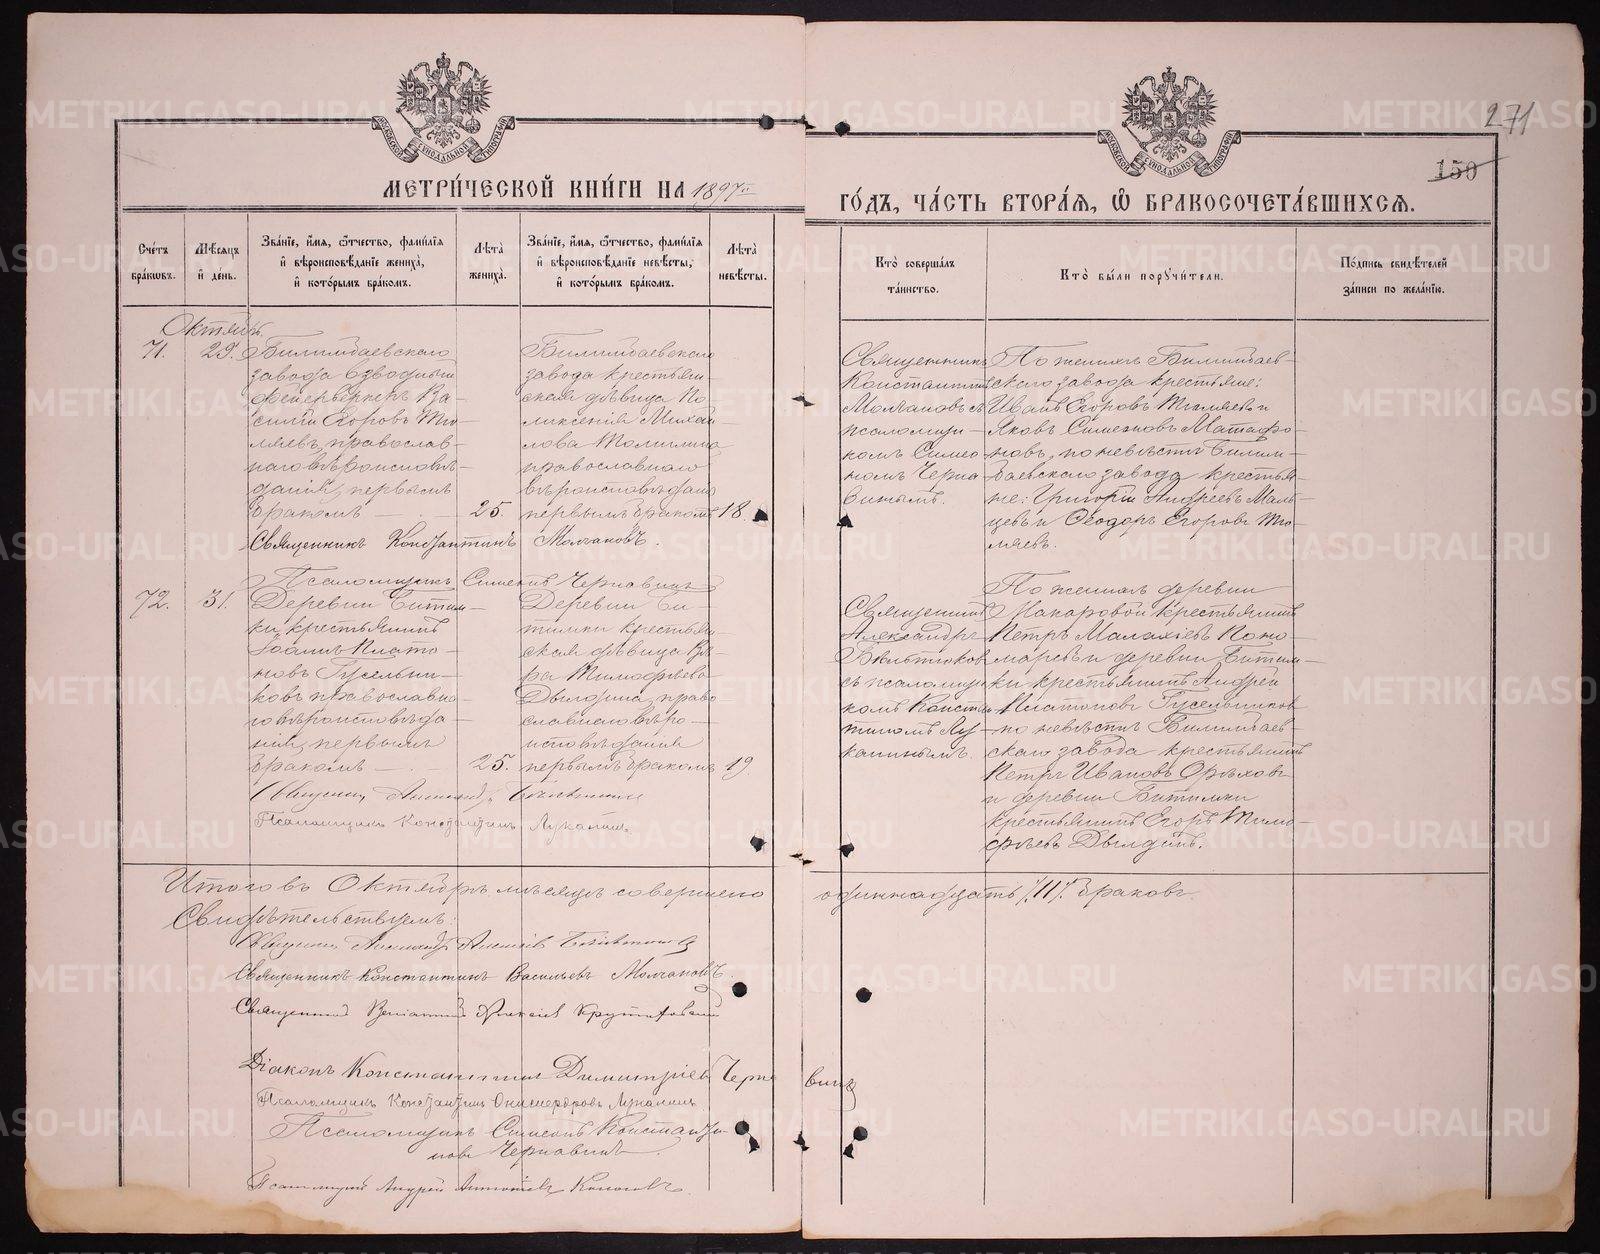 271
150
МЕТРИ́ЧЕСКОЙ КНИ́ГИ НА 1897й
ГО́ДЪ, ЧА́СТЬ ВТОРА́Я, Ѿ БРАКОСОЧЕТА́ВШИХСЯ.
Сче́тъ бра́ковъ.
Мѣ́сяцъ и де́нь.
Зва́нїе, и́мя, ѻ҆́тчество, фами́лїя и вѣроисповѣ́данїе жениха̀, и кото́рымъ бра́комъ.
Лѣта̀ жениха̀.
Зва́нїе, и́мя, ѻ҆́тчество, фами́лїя и вѣроисповѣ́данїе невѣ́сты, и кото́рымъ бра́комъ.
Лѣта̀ невѣ́сты.
Кто̀ соверша́лъ та́инство.
Кто̀ бы́ли порꙋчи́тели.
По́дпись свидѣ́телей за́писи по жела́нїю.
Октябрь.
71.
29.
Билимбаевскаго
завода взводный
фейерверкеръ Ва-
силій Егоровъ Тю-
ляевъ, православ-
наго вѣроисповѣ-
данія, первымъ
бракомъ
25.
Билимбаевскаго
завода крестьян-
ская дѣвица По-
ликсенія Михай-
лова Томилина
православнаго
вѣроисповѣданія
первымъ бракомъ
18.
Священникъ
Константинъ
Молчановъ съ
псаломщи-
комъ Симео-
номъ Черна-
винымъ.
По женихѣ Билимбаев-
скаго завода крестьяне:
Иванъ Егоровъ Тюляевъ и
Яковъ Симеоновъ Матафо-
новъ, по невѣстѣ Билим-
баевскаго завода крестья-
не: Григорій Андреевъ Маль-
цевъ и Ѳеодоръ Егоровъ Тю-
ляевъ.
Священникъ Константинъ Молчановъ.
Псаломщикъ Симеонъ Чернавинъ
72.
31.
Деревни Битим-
ки крестьянинъ
Іоаннъ Плато-
новъ Гусельни-
ковъ православна-
го вѣроисповѣда-
нія, первымъ
бракомъ
25.
Деревни Би-
тимки крестьян-
ская дѣвица Вѣ-
ра Тимофѣева
Дылдина, право-
славнаго вѣро-
исповѣданія
первымъ бракомъ
19.
Священникъ
Александръ
съ псаломщи-
комъ Констан-
тиномъ Лу-
канинымъ.
По женихѣ деревни
Макаровой крестьянинъ
Петръ Малахіевъ Коно-
маревъ и деревни Битим-
ки крестьянинъ Андрей
Платоновъ Гусельниковъ
по невѣстѣ Билимбаев-
скаго завода крестьянинъ
Петръ Ивановъ Орѣховъ
и деревни Битимки
крестьянинъ Егоръ Тимо-
фѣевъ Дылдинъ.
Псаломщикъ Константинъ Луканинъ.
Итого въ Октябрѣ мѣсяцѣ совершено одиннадцать /11/ браковъ.
Свидѣтельствуемъ:
Священникъ Александръ Алексіевъ
Священникъ Константинъ Васильевъ Молчановъ.
Священникъ Веніаминъ Алексіевъ
Діаконъ Константинъ Димитріевъ Чернавинъ
Псаломщикъ Константинъ Луканинъ
Псаломщикъ Симеонъ Константи-
новъ Чернавинъ.
Псаломщикъ Андрей Кононовъ.